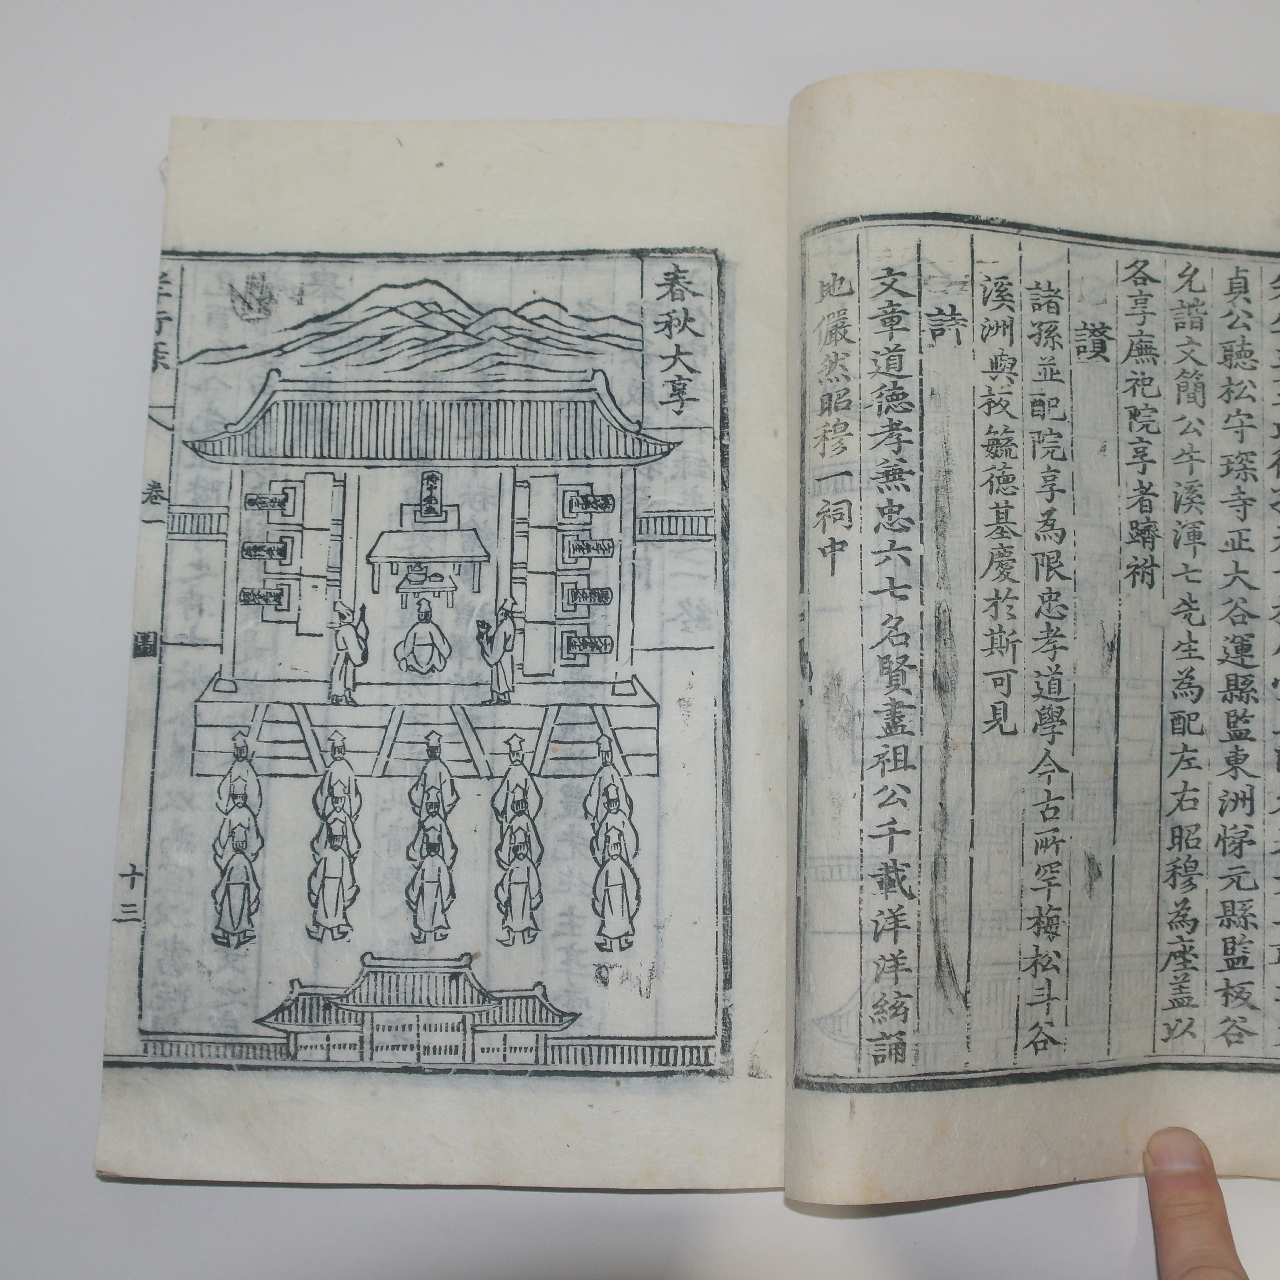 貞公聽松守琛寺正大谷運縣監東洲悌元縣監板谷
允諧文簡公牛溪渾七先生為配左右昭穆為座盖以
各享廡祀院享者躋祔
讚
諸孫並配院享為限忠孝道學今古所罕梅松斗谷
溪洲與板毓德基慶於斯可見
詩
文章道德孝兼忠六七名賢盡祖公千載洋洋絃誦
地儼然昭穆一祠中
春秋大享
卷一
圖
十三